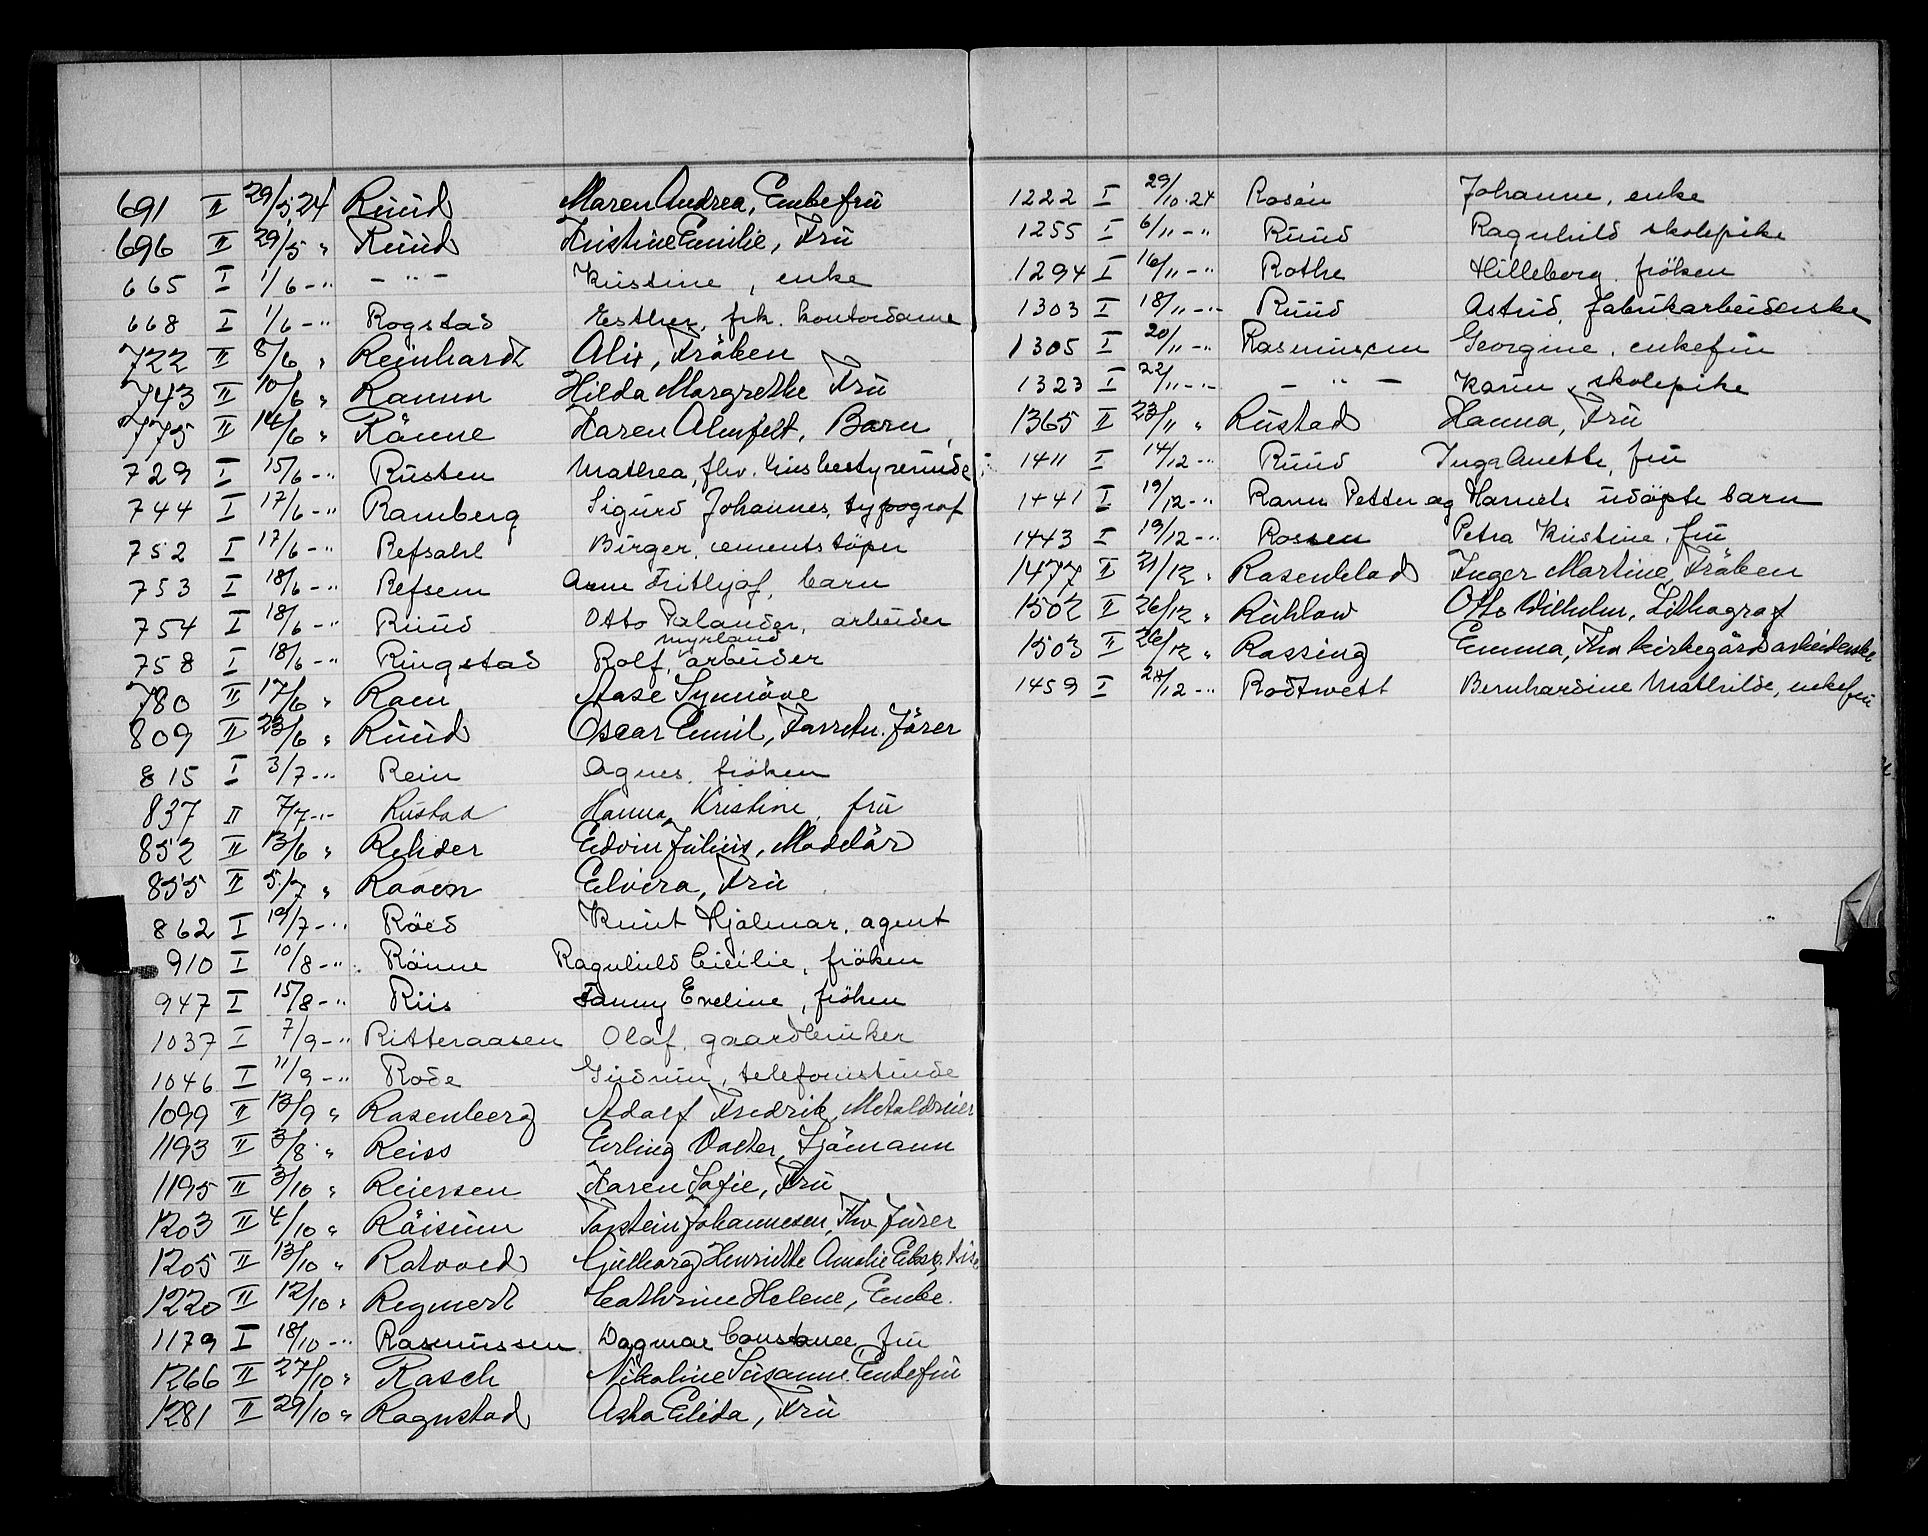 691 II 29/5.24 Ruud Maren Andrea, Enkefru
696 II 29/5 " Ruud Kristine Emilie, Fru
665 I 1/6 -" - " - Kristine, enke
668 I 1/6 -" Rogstad Esther, frk. kontordame
722 II 8/6 " Reinhardt Alix, Fröken
743 II 10/6 " Ramm Hilda Margrethe Fru
775 II 14/6 " Rönne Karen Almfelt, Barn
729 I 15/6 -" Rusten Mathea, fhv.
744 I 17/6 -" Ramberg Sigurd Johannes, typograf
752 I 17/6 -" Refsahl Birger, cementstöper
753 I 18/6 -" Refsem Arne Frithjof, barn
754 I 18/6 -" Ruud Otto Palander, arbeider
758 I 18/6 -" Ringstad Rolf, Myrland arbeider
780 II 17/6 " Roen Aase Synnöve
809 II 23/6 " Ruud Oscar Emil, Forretn. förer
815 I 3/7 -" Rein Agnes, fröken
837 II 7/7 -" Rustad Hanna Kristine, fru
852 II 13/6 " Rehder Edvin Julius, Modelör
855 II 5/7 " Raaen Elvira, Fru
862 I 19/7 -" Röed Knut Hjalmar, agent
910 I 10/8 -" Rönne Ragnhild Cicilie, fröken
947 I 15/8 -" Riis Fanny Eveline, fröken
1037 I 7/9 -" Ritteraasen Olaf, gaardbruker
1046 I 11/9 -" Rode Gudrun, telefonistinde
1099 II 13/9 " Rosenberg Adolf Fredrik, Metaldreier
1193 II 3/8 " Reiss Erling Sjömann
1195 II 3/10 " Reiersen Karen Sofie, Fru
1203 II 4/10 " Röisum Torstein Johannesen, Fhv. förer
1205 II 13/10 " Rotvold Gulborg Henriette Amalie
1220 II 12/10 " Regnert Cathrine Helene, Enke.
1179 I 18/10 -" Rasmussen Dagmar Constance, fru
1266 II 27/10 " Rasch Nikoline Susanne Enkefru
1281 II 29/10 " Rognstad Asta Elida, Fru
1222 I 29/10.24 Rosén Johanne, enke
1255 I 6/11 -" Ruud Ragnhild skolepike
1294 I 16/11 -" Rothe Hilleborg, fröken
1303 I 18/11 -" Ruud Astrid, fabrikarbeiderske
1305 I 20/11 -" Rasmussen Georgine, enkefru
1323 I 22/11 -" - " - Karin, skolepike
1365 II 23/11 " Rustad Hanna, Fru
1411 I 14/12 -" Ruud Inga Anette, fru
1441 I 19/12 -" Ravn Petter og Harriets udöpte barn
1443 I 19/12 -" Rossen Petra Kristine, fru
1477 II 21/12 " Rosenblad Inger Martine, Fröken
1502 II 26/12 " Rühlow Otto Wilhelm, Lithograf
1503 II 26/12 " Rossing Emma, Fhv. kirkegårdsarbeiderske
1459 I 28/12 -" Rodtwett Bernhardine Mathilde, enkefru